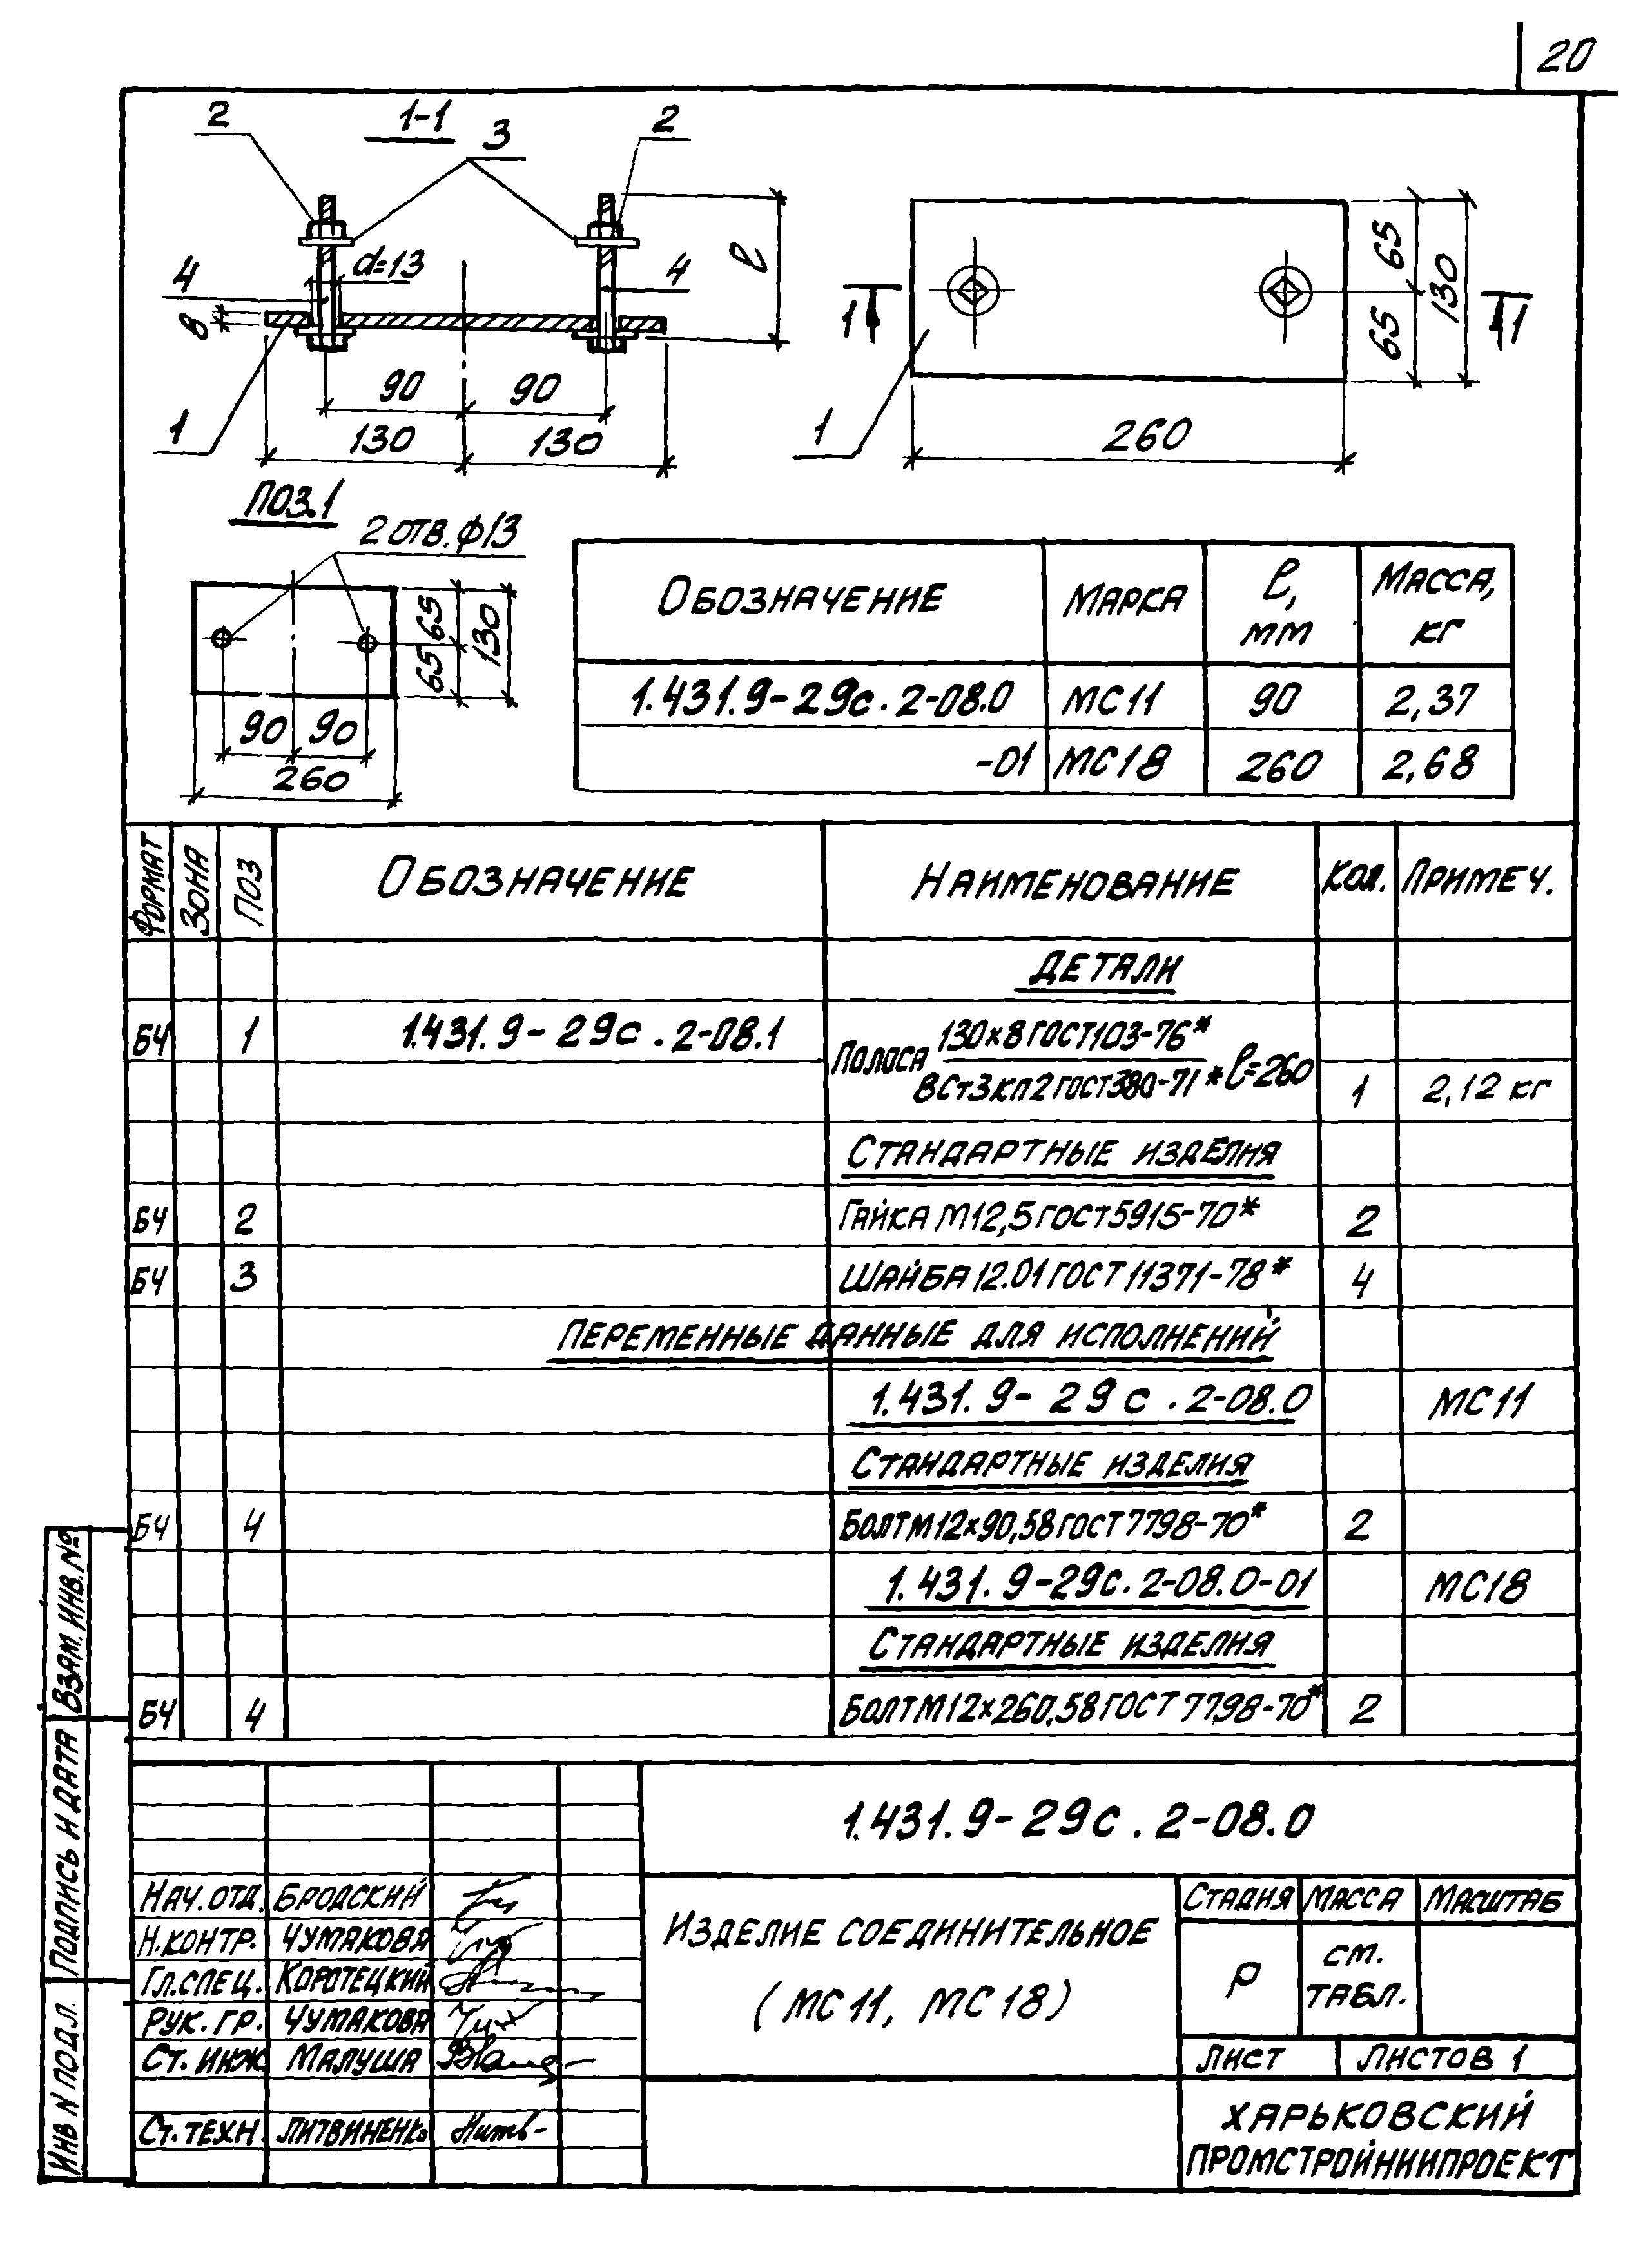 20
1-1
2
3
2
4
d=13
4
ℓ
8
1
90
90
130
130
1
1
1
65
65
130
260
Поз.1
2 отв. ф13
65
65
130
90
90
260
Обозначение Марка ℓ, мм Масса, кг
1.431.9-29с.2-08.0 МС11 90 2,37
-01 МС18 260 2,68
Формат Зона Поз Обозначение Наименование Кол. Примеч.
Детали
БЧ 1 1.431.9-29с.2-08.1 Полоса 130×8 ГОСТ 103-76*
ВСт3кп2 ГОСТ 380-71* ℓ=260 1 2,12 кг
Стандартные изделия
БЧ 2 Гайка М12,5 ГОСТ 5915-70* 2
БЧ 3 Шайба 12.01 ГОСТ 11371-78* 4
Переменные данные для исполнений:
1.431.9-29с.2-08.0 МС11
Стандартные изделия
БЧ 4 Болт М12×90,58 ГОСТ 7798-70* 2
1.431.9-29с.2-08.0-01 МС18
Стандартные изделия
БЧ 4 Болт М12×260,58 ГОСТ 7798-70* 2
Взам. инв. №
Подпись и дата
Инв N подл.
1.431.9-29с.2-08.0
Нач. отд. Бродский
Н. контр. Чумакова
Гл. спец. Коротецкий
Рук. гр. Чумакова
Ст. инж Малуша
Ст. техн. Литвиненко
Изделие соединительное
(МС11, МС18)
Стадия Масса Масштаб
Р см. табл.
Лист Листов 1
Харьковский
Промстройниипроект